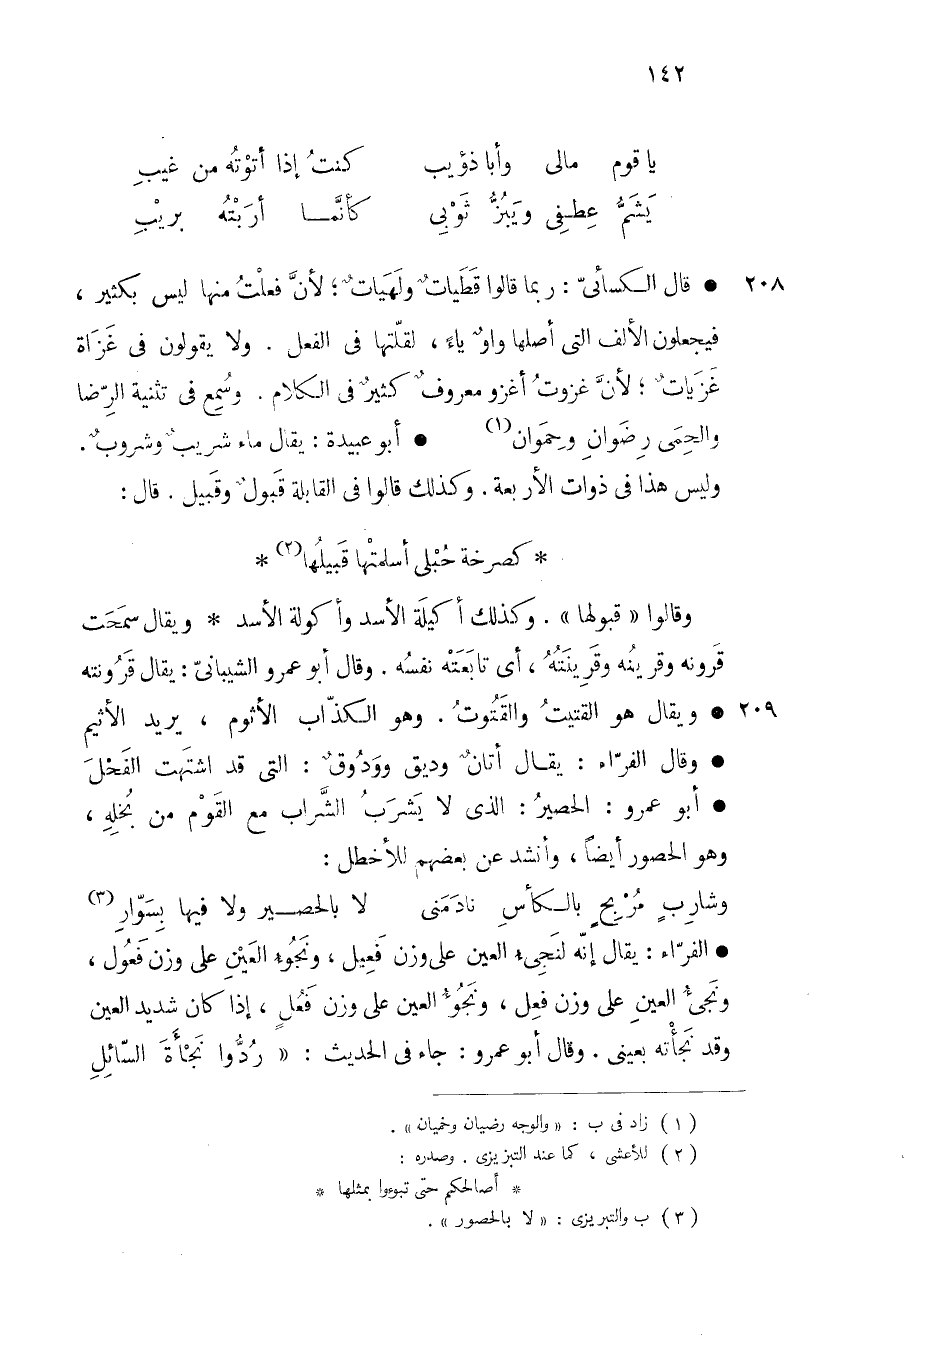 ١٤٢
يا قوم مالى وأبا ذؤيب كنتُ إذا أتوْتُه من غيبِ
يَشَمُّ عِطفِى ويَبُزُّ ثَوْبِى كأنَّمـا أرَبْتُه بريْبِ
٢٠٨ • قال الكسائىّ : ربما قالوا قَطَيات ٌ ولَهَيات ٌ ؛ لأنَّ فعلْتُ منها ليس بكثير ،
فيجعلون الألف التى أصلها واو ٌ ياءً ، لقلّتها فى الفعل . ولا يقولون فى غَزَاة
غَزَيات ٌ ؛ لأنَّ غزوتُ أغزو معروفٌ كثيرٌ فى الكلام . وسُمِع فى تثنية الرِّضا
والحِمَى رِضَوانِ وحِمَوان(١) • أبو عبيدة : يقال ماء شريبٌ وشروبٌ .
وليس هذا فى ذوات الأربعة . وكذلك قالوا فى القابلة قَبول ٌ وقَبيل . قال :
* كصرخة حُبْلى أسلمتْها قَبيلُها(٢) *
وقالوا « قبولها » . وكذلك أكيلَة الأسد وأكولة الأسد * ويقال سمَحَت
قَرونه وقرينُه وقَرِينَتُهُ ، أى تابَعَتْه نفسُه . وقال أبو عمرو الشيبانىّ : يقال قَرُونته
٢٠٩ • ويقال هو القتيتُ والقَتُوتُ . وهو الكذّاب الأثوم ، يريد الأثيم
• وقال الفرّاء : يقـال أتانٌ وديق ووَدُوقٌ : التى قد اشتَهت الفَحْلَ
• أبو عمرو : الحصيرُ : الذى لا يَشرَبُ الشَّراب مع القَوْم من بُخلِهِ ،
وهو الحصور أيضاً ، وأنشد عن بعضهم للأخطل :
وشارِبٍ مُرْبِحٍ بالـكأسِ نادَمَنى لا بالحصـيرِ ولا فيها بِسَوّارِ(٣)
• الفرّاء : يقال إنّه لنَجِىء العين على وزن فَعِيل ، ونَجُوء العَيْنِ على وزن فَعُول ،
ونَجِئُ العينِ على وزن فَعِل ، ونَجُؤُ العين على وزن فَعُلٍ ، إذا كان شديد العين
وقد نَجَأْته بعينى . وقال أبو عمرو : جاء فى الحديث : « رُدُّوا نَجْأَةَ السّائِلِ
( ١ ) زاد فى ب : « والوجه رضيان وحميان » .
( ٢ ) للأعشى ، كما عند التبزيزى . وصدره :
* أصالحكم حتى تبوءوا بمثلها *
( ٣ ) ب والتبريزى : « لا بالحصور » .